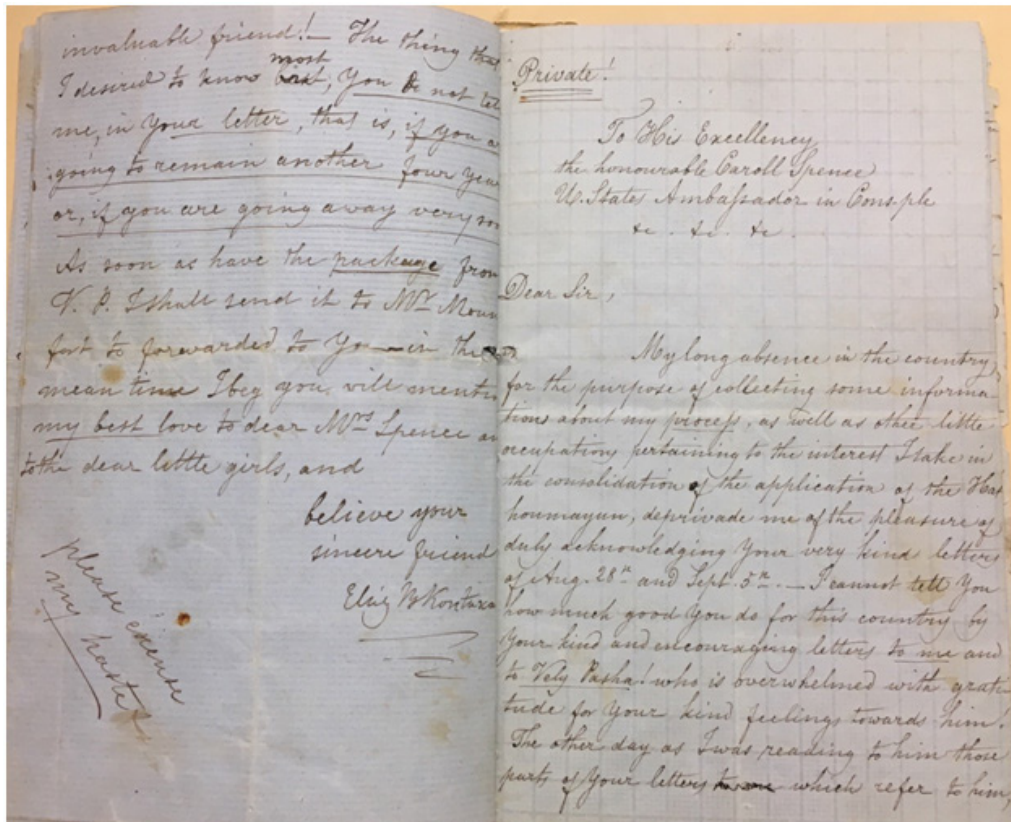 invaluable friend! — The thing that
I desired to know most, You do not tel
me, in Your letter, that is, if you a
going to remain another four Year
or, if you are going away very soo
As soon as have the package from
V. P. I shall send it to Mr Moun
fort to forwarded to You — in the
mean time I beg you will mentio
my best love to dear Mrs Spence an
to the dear little girls, and
believe your
sincere friend
Eliz B Kontaxa
please excuse
my haste!
Private!
To His Excellency
the honourable Caroll Spence
U. States Ambassador in Cons.ple
&c. &c. &c.
Dear Sir,
My long absence in the country
for the purpose of collecting some informa-
tions about my process, as well as other little
occupations pertaining to the interest I take in
the consolidation of the application of the Hat
houmayun, deprivade me of the pleasure of
duly acknowledging Your very kind letters
of Aug. 28th and Sept. 5th. — I cannot tell You
how much good You do for this country by
Your kind and encouraging letters to me and
to Vely Pasha! who is overwhelmed with grati
tude for Your kind feelings towards him!
The other day as I was reading to him those
parts of Your letters which refer to him,